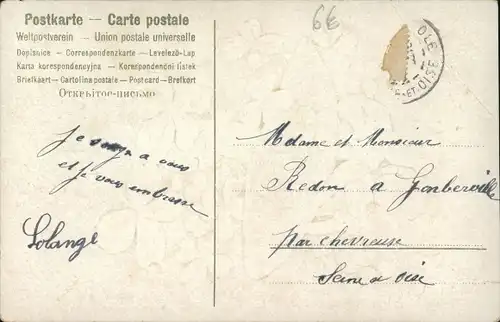 Postkarte — Carte postale
Weltpostverein — Union postale universelle
Dopisnice — Correspondenzkarte — Levelező-Lap
Karta korespondencyjna — Korespondenční lístek
Briefkaart — Cartolina postale — Postcard — Brefkort
Открытое письмо
6€
OLE
ET-OISE
Je songe a vous
et je vous embrasse
Solange
Madame et Monsieur
Redon a Gomberville
par chevreuse
Seine et oise